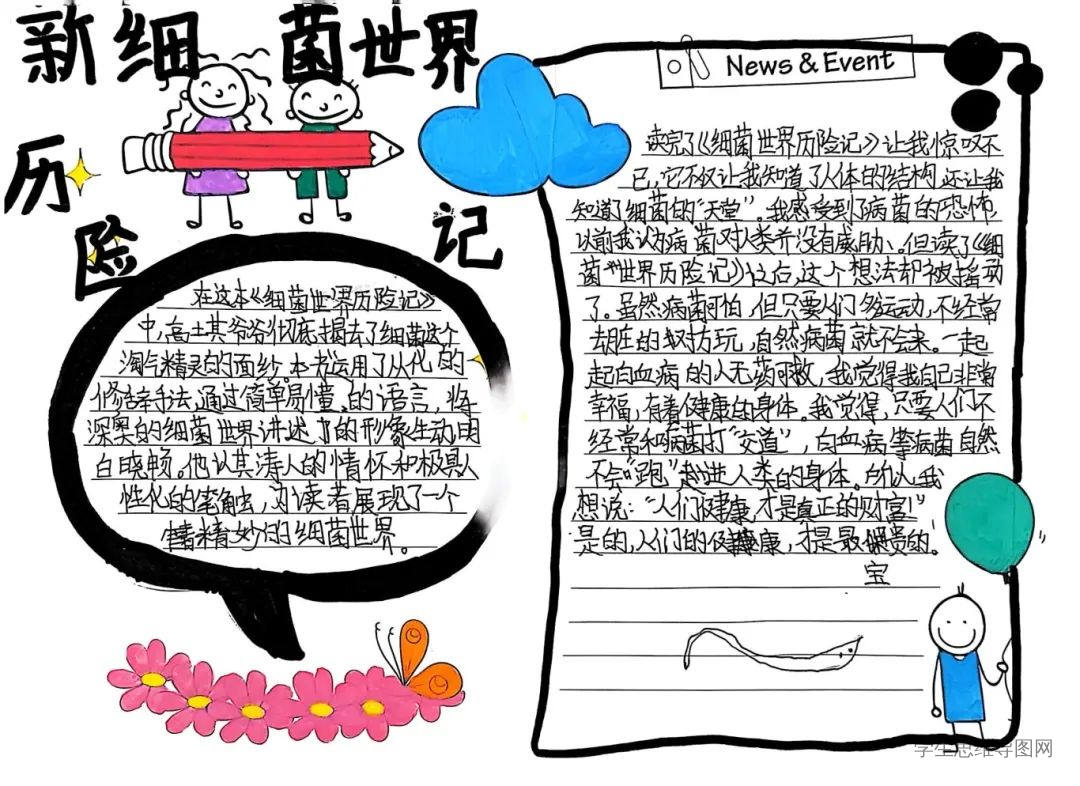 新细菌世界
历
险
记
在这本《细菌世界历险记》
中,高士其爷爷彻底揭去了细菌这个
淘气精灵的面纱。本书运用了人化的
修辞手法,通过简单易懂的语言,将
深奥的细菌世界讲述了的形象生动,明
白晓畅。他以其涛人的情怀和极具人
性化的笔触,为读者展现了一个
精妙的细菌世界。
News & Event
读完了《细菌世界历险记》让我惊叹不
已,它不仅让我知道了人体的结构,还让我
知道了细菌的“天堂”。我感受到了病菌的恐怖
以前我认为病菌对人类并没有威胁、但读了《细
菌世界历险记》这后,这个想法却被摇动
了。虽然病菌可怕,但只要人们多运动,不经常
去脏的地方玩,自然病菌就不会来。一起
起白血病的人无药可救,我觉得我自己非常
幸福,有着健康的身体。我觉得,只要人们不
经常和病菌打“交道”,白血病等病菌自然
不会“跑”进人类的身体。所以,我
想说:“人们健康,才是真正的财富!”
是的,人们的健康,才是最贵的。
宝
学生思维导图网